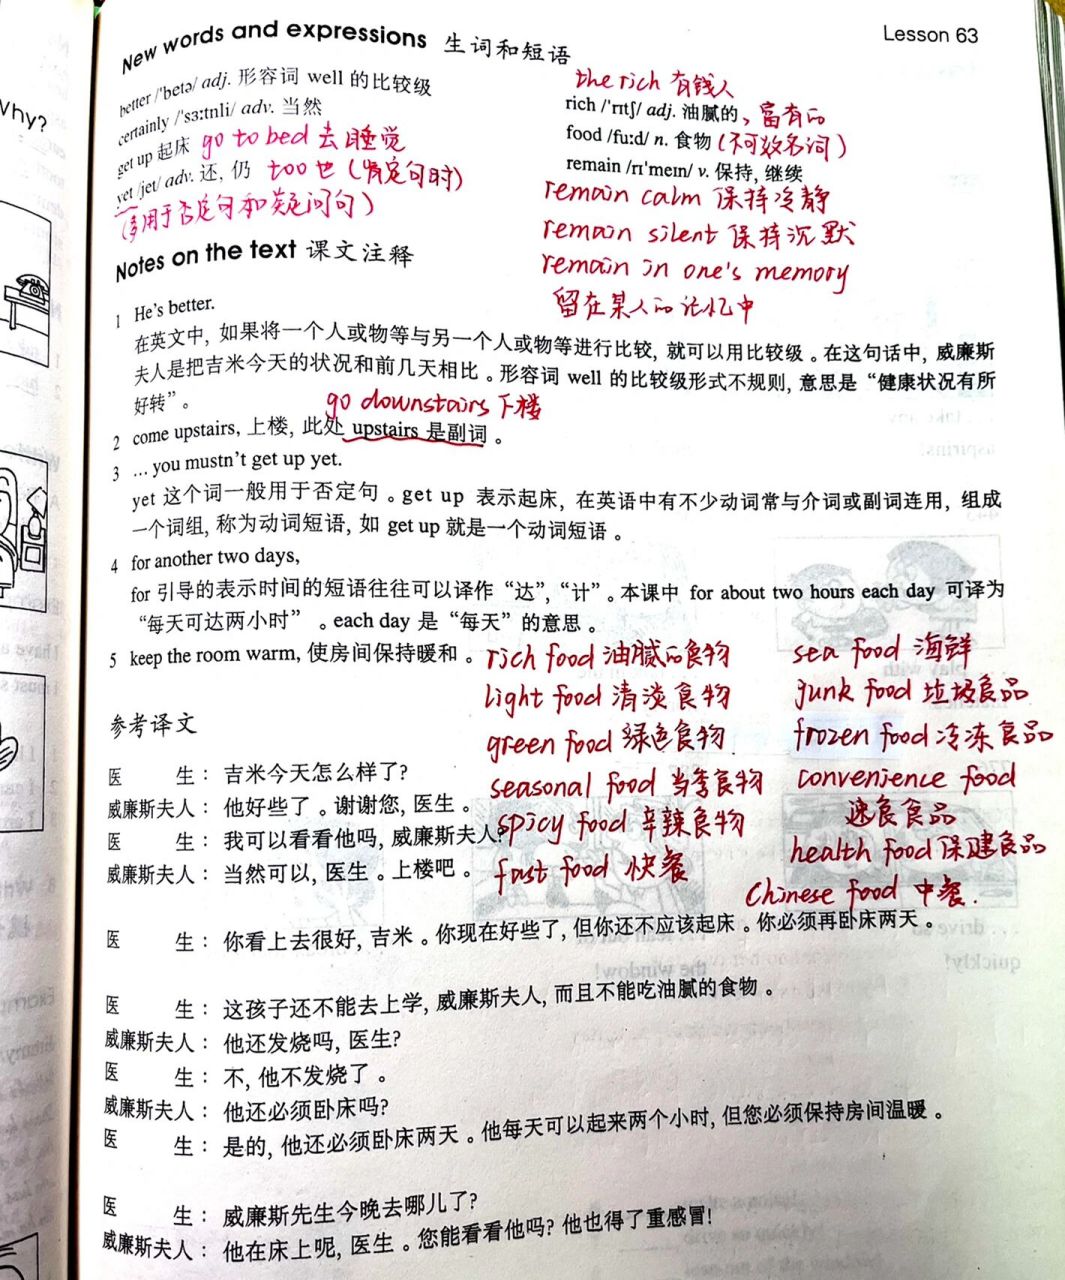 Lesson 63
New words and expressions 生词和短语
better /'betə/ adj. 形容词 well 的比较级
certainly /'sɜ:tnli/ adv. 当然
get up 起床 go to bed 去睡觉
yet /jet/ adv. 还, 仍 too 也 (肯定句时)
(多用于否定句和疑问句)
the rich 有钱人
rich /'rɪtʃ/ adj. 油腻的、富有的
food /fu:d/ n. 食物 (不可数名词)
remain /rɪ'meɪn/ v. 保持, 继续
remain calm 保持冷静
remain silent 保持沉默
remain in one's memory
留在某人的记忆中
Notes on the text 课文注释
1 He's better.
在英文中, 如果将一个人或物等与另一个人或物等进行比较, 就可以用比较级。在这句话中, 威廉斯
夫人是把吉米今天的状况和前几天相比。形容词 well 的比较级形式不规则, 意思是“健康状况有所
好转”。
go downstairs 下楼
2 come upstairs, 上楼, 此处 upstairs 是副词。
3 … you mustn't get up yet.
yet 这个词一般用于否定句。get up 表示起床, 在英语中有不少动词常与介词或副词连用, 组成
一个词组, 称为动词短语, 如 get up 就是一个动词短语。
4 for another two days,
for 引导的表示时间的短语往往可以译作“达”, “计”。本课中 for about two hours each day 可译为
“每天可达两小时”。each day 是“每天”的意思。
5 keep the room warm, 使房间保持暖和。
rich food 油腻的食物
light food 清淡食物
green food 绿色食物
seasonal food 当季食物
spicy food 辛辣食物
fast food 快餐
sea food 海鲜
junk food 垃圾食品
frozen food 冷冻食品
convenience food
速食食品
health food 保健食品
Chinese food 中餐.
参考译文
医 生: 吉米今天怎么样了?
威廉斯夫人: 他好些了。谢谢您, 医生。
医 生: 我可以看看他吗, 威廉斯夫人?
威廉斯夫人: 当然可以, 医生。上楼吧。
医 生: 你看上去很好, 吉米。你现在好些了, 但你还不应该起床。你必须再卧床两天。
医 生: 这孩子还不能去上学, 威廉斯夫人, 而且不能吃油腻的食物。
威廉斯夫人: 他还发烧吗, 医生?
医 生: 不, 他不发烧了。
威廉斯夫人: 他还必须卧床吗?
医 生: 是的, 他还必须卧床两天。他每天可以起来两个小时, 但您必须保持房间温暖。
医 生: 威廉斯先生今晚去哪儿了?
威廉斯夫人: 他在床上呢, 医生。您能看看他吗? 他也得了重感冒!
why?